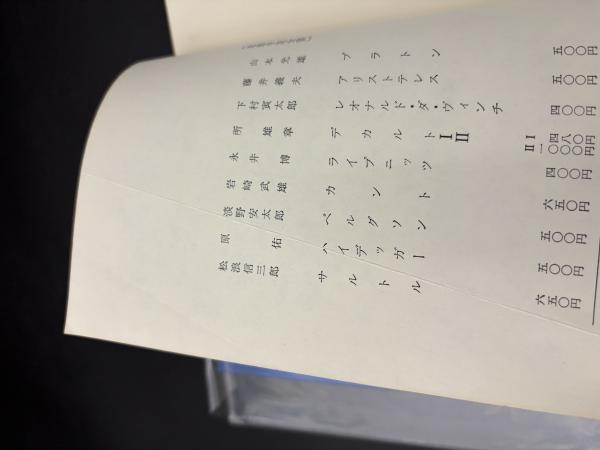 山本光雄 プラトン 五〇〇円
藤井義夫 アリストテレス 五〇〇円
下村寅太郎 レオナルド・ダ・ヴィンチ 四〇〇円
所雄章 デカルトⅠⅡ Ⅰ四八〇円 Ⅱ一〇〇〇円
永井博 ライプニッツ 四〇〇円
岩崎武雄 カント 六五〇円
淡野安太郎 ベルグソン 五〇〇円
原佑 ハイデッガー 五〇〇円
松浪信三郎 サルトル 六五〇円